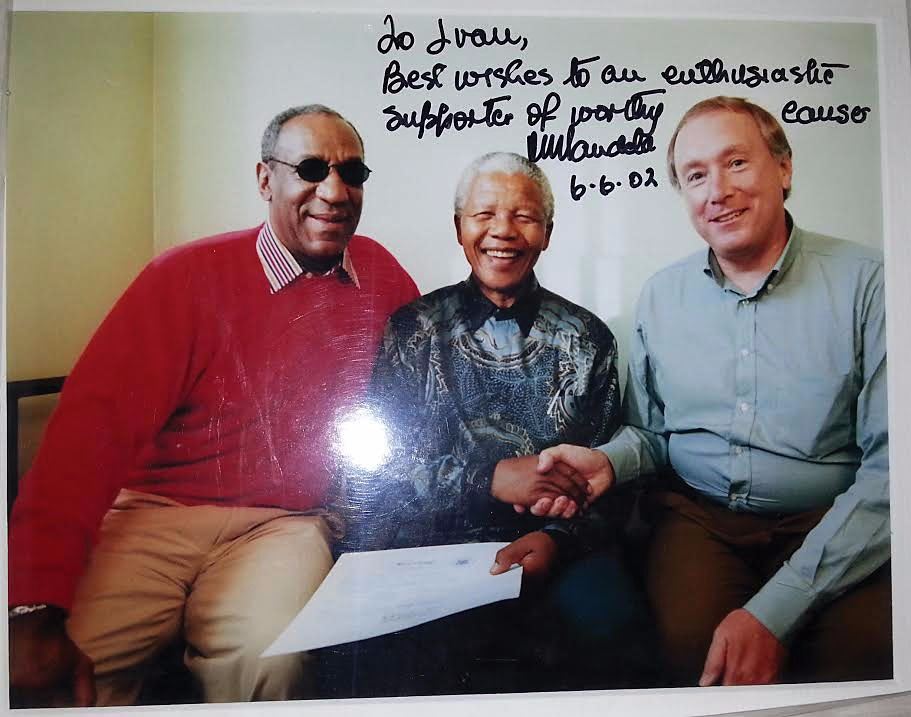 To Ivan,
Best wishes to an enthusiastic
supporter of worthy causes
NMandela
6.6.02